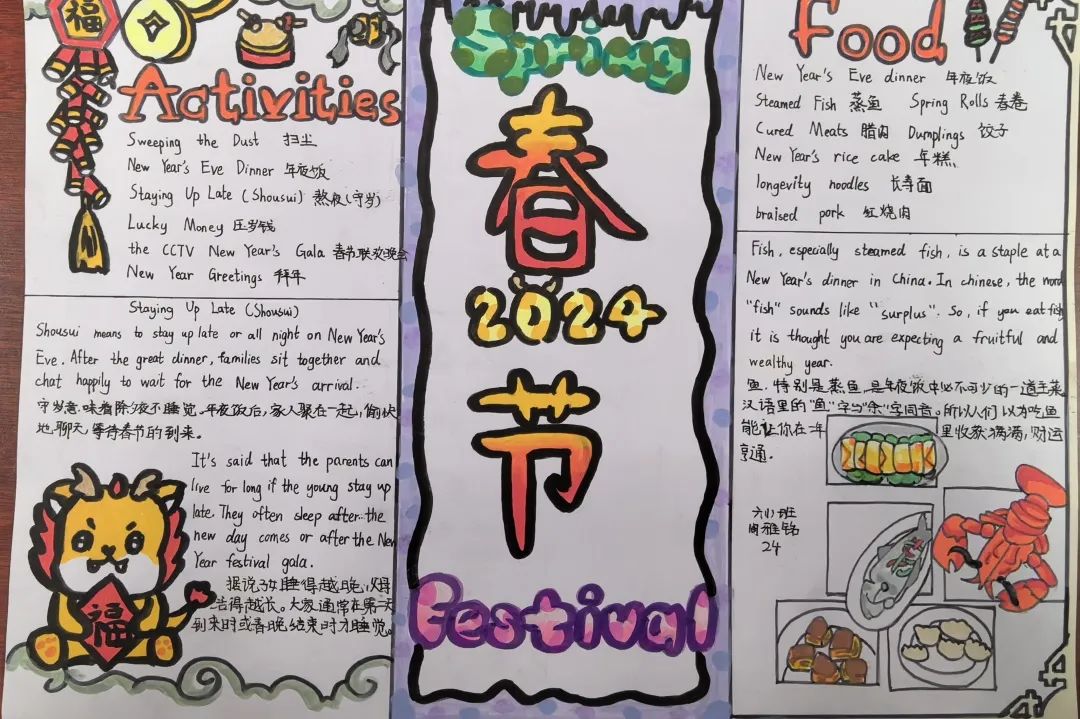 福
Activities
Sweeping the Dust 扫尘
New Year's Eve Dinner 年夜饭
Staying Up Late (Shousui) 熬夜(守岁)
Lucky Money 压岁钱
the CCTV New Year's Gala 春节联欢晚会
New Year Greetings 拜年
Staying Up Late (Shousui)
Shousui means to stay up late or all night on New Year's
Eve. After the great dinner, families sit together and
chat happily to wait for the New Year's arrival.
守岁意味着除夕夜不睡觉。年夜饭后，家人聚在一起，愉快
地聊天，等待春节的到来。
It's said that the parents can
live for long if the young stay up
late. They often sleep after the
new day comes or after the New
Year festival gala.
据说子女睡得越晚，父母
活得越长。大家通常在第一天
到来时或春晚结束时才睡觉。
福
Spring
春
2024
节
Festival
Food
New Year's Eve dinner 年夜饭
Steamed Fish 蒸鱼 Spring Rolls 春卷
Cured Meats 腊肉 Dumplings 饺子
New Year's rice cake 年糕
longevity noodles 长寿面
braised pork 红烧肉
Fish, especially steamed fish, is a staple at a
New Year's dinner in China. In chinese, the word
"fish" sounds like "surplus". So, if you eat fish
it is thought you are expecting a fruitful and
wealthy year.
鱼，特别是蒸鱼，是年夜饭中必不可少的一道主菜
汉语里的"鱼"字与"余"字同音。所以人们认为吃鱼
能让你在一年里收获满满，财运
亨通。
六(1)班
周雅铭
24